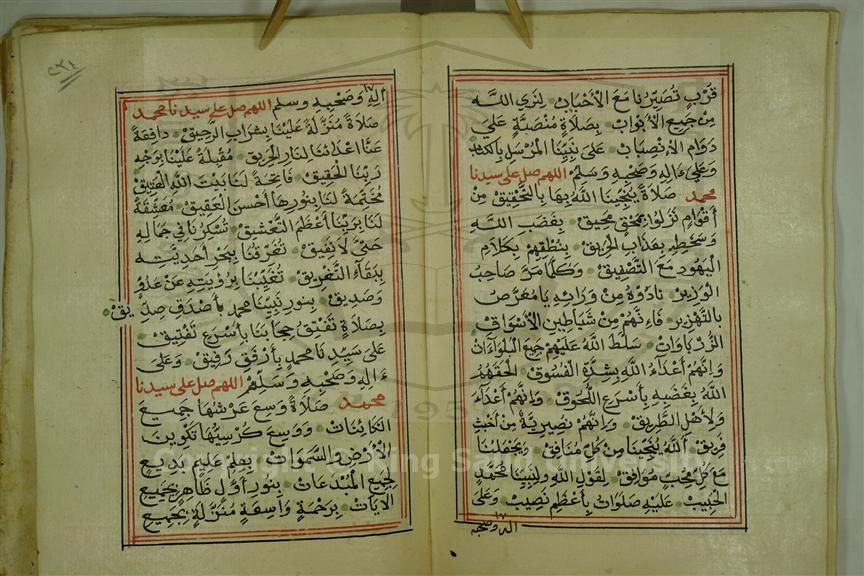 قُرْبٍ تُصَيِّرُنَا مَعَ الْأَحْبَابِ لِنَرَى اللَّهَ
مِنْ جَمِيعِ الْأَبْوَابِ بِصَلَاةٍ مُنْصَبَّةٍ عَلَى
دَوَامِ الْاِنْصِبَابِ عَلَى نَبِيِّنَا الْمُرْسَلِ بِالْكِتَابِ
وَعَلَى ءَالِهِ وَصَحْبِهِ وَسَلَّمَ اللهم صل على سيدنا
محمد صَلَاةً يُنَجِّينَا اللَّهُ بِهَا بِالتَّحْقِيقِ مِنْ
أَقْوَامٍ نَزَلُوا بِغَضَبِ اللَّهِ
وَسَخَطِهِ بِعَذَابِ الْحَرِيقِ بِنُطْقِهِمْ بِكَلَامِ
الْيَهُودِ مَعَ التَّصْفِيقِ وَكُلَّمَا مَرَّ صَاحِبُ
الْوِزِيرِ نَادَوْهُ مِنْ وَرَائِهِ يَا مُعَرَّصْ
فَإِنَّهُمْ مِنْ شَيَاطِينِ الْأَسْوَاقِ
سَلَّطَ اللَّهُ عَلَيْهِمْ جَمِيعَ
وَإِنَّهُمْ أَعْدَاءُ اللَّهِ بِشِدَّةِ الْفُسُوقِ أَلْحَقَهُمُ
اللَّهُ بِغَضَبِهِ بِأَسْرَعِ اللُّحُوقِ وَإِنَّهُمْ أَعْدَاءُ
وَلِأَهْلِ الطَّرِيقِ وَإِنَّهُمْ نُصَيْرِيَّةٌ مِنْ أَخْبَثِ
فَرِيقٍ أَللَّهُ يُنَجِّينَا مِنْ كُلِّ مُنَافِقٍ وَيَجْعَلُنَا
مَعَ كُلِّ مُحِبٍّ مُوَافِقٍ لِقَوْلِ اللَّهِ وَلِنَبِيِّنَا مُحَمَّدٍ
الْحَبِيبِ عَلَيْهِ صَلَوَاتٌ بِأَعْظَمِ نَصِيبٍ وَعَلَى
اله وصحبه
ءَالِهِ وَصَحْبِهِ وسلم اللهم صل على سيدنا محمد
صَلَاةً مُنَزَّلَةً عَلَيْنَا بِشَرَابِ الرَّحِيقِ دَافِعَةً
عَنَّا أَعْدَائَنَا لِنَارِ الْحَرِيقِ مُقْبِلَةً عَلَيْنَا بِوَجْهِ
رَبِّنَا الْحَقِيقِ فَاتِحَةً لَنَا بَيْتَ اللَّهِ الْعَتِيقِ
مُخَتِّمَةً لَنَا بِنُورِهَا أَحْسَنَ الْعَقِيقِ مُعَشِّقَةً
لَنَا بِرَبِّنَا أَعْظَمَ التَّعْشِيقِ تُسْكِرُنَا فِي جَمَالِهِ
حَتَّى لَا نَفِيقَ تُغَرِّقُنَا بِبَحْرِ أَحَدِيَّتِهِ
بِبَقَاءِ التَّغْرِيقِ تُغَيِّبُنَا بِرُؤْيَتِهِ عَنْ عَدُوٍّ
وَصَدِيقٍ بِنُورِ نَبِيِّنَا محمد بِأَصْدَقِ صِدِّيقٍ
بِصَلَاةٍ تَفْتِقُ حِجَابَنَا بِأَسْرَعِ تَفْتِيقٍ
عَلَى سَيِّدِنَا مُحَمَّدٍ بِأَرْفَقِ رَفِيقٍ وَعَلَى
ءَالِهِ وَصَحْبِهِ وَسَلَّمَ اللهم صل على سيدنا
محمد صَلَاةً وَسِعَ عَرْشُهَا جَمِيعَ
الْكَائِنَاتِ وَوَسِعَ كُرْسِيُّهَا تَكْوِينَ
الْأَرْضِ وَالسَّمَوَاتِ بِعِلْمِ عَلِيمٍ بَدِيعٍ
لِجَمِيعِ الْمُبْدَعَاتِ بِنُورِ أَوَّلٍ ظَاهِرٍ بِجَمِيعِ
الْآيَاتِ بِرَحْمَةٍ وَاسِعَةٍ مُنَزَّلَةٍ بِجَمِيعِ